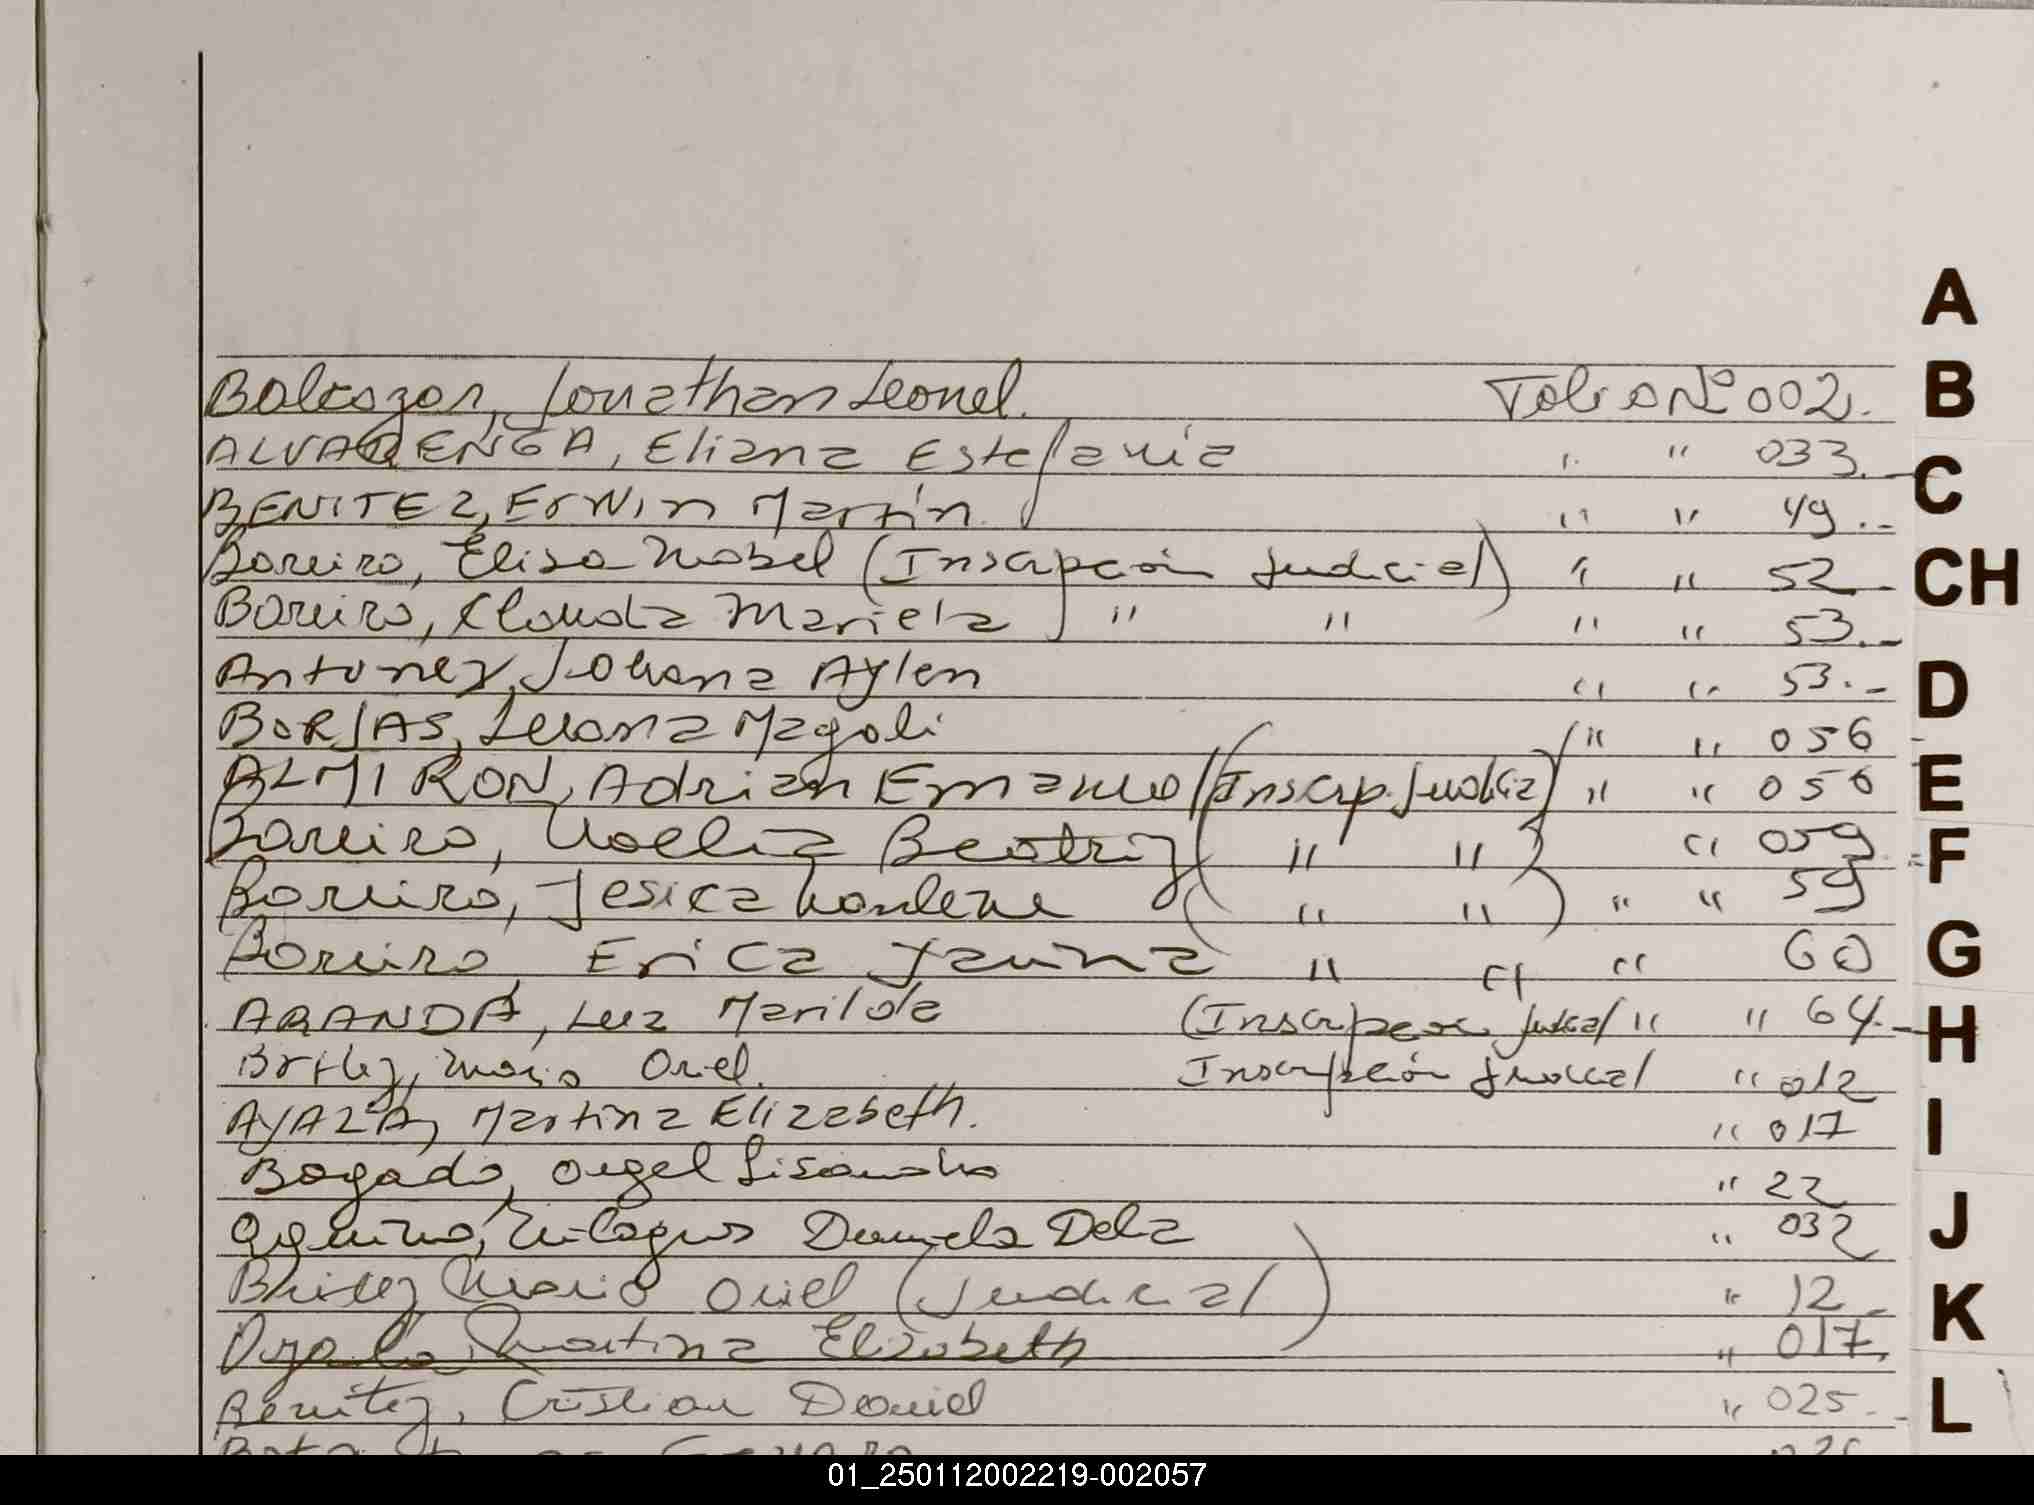 A
Baltazar, Jonathan Leonel. Folio Nº 002.
B
ALVARENGA, Eliana Estefania " " 033.-
C
BENITEZ, Erwin Martin. " " 49.-
Boreiro, Elisa Mabel (Inscripción Judicial) " " 52-
CH
Boreiro, Claudia Mariela " " " " 53.-
Antunez, Johana Aylen " " 53.-
D
BORJAS, Luana Magali " " 056
ALMIRON, Adrian Emanuel (Inscrip. Judicial) " " 056
E
Boreiro, Noelia Beatriz ( " " ) " 059
F
Boreiro, Jesica Marlene ( " " ) " " 59
Boreiro, Erica Yanina " " " 60
G
ARANDA, Luz Marilda (Inscripción Judicial) " " 64.-
H
Britez, Mario Oriel. Inscripción Judicial " 012
AYALA, Martina Elizabeth. " 017
I
Bogado, Angel Lisandro " 22
Aquino, Milagros Daniela Delia " 032
J
Britez Mario Oriel (Judicial) " 12-
K
Ayala, Martina Elizabeth " 017.
Benitez, Cristian Daniel " 025.-
L
01_250112002219-002057